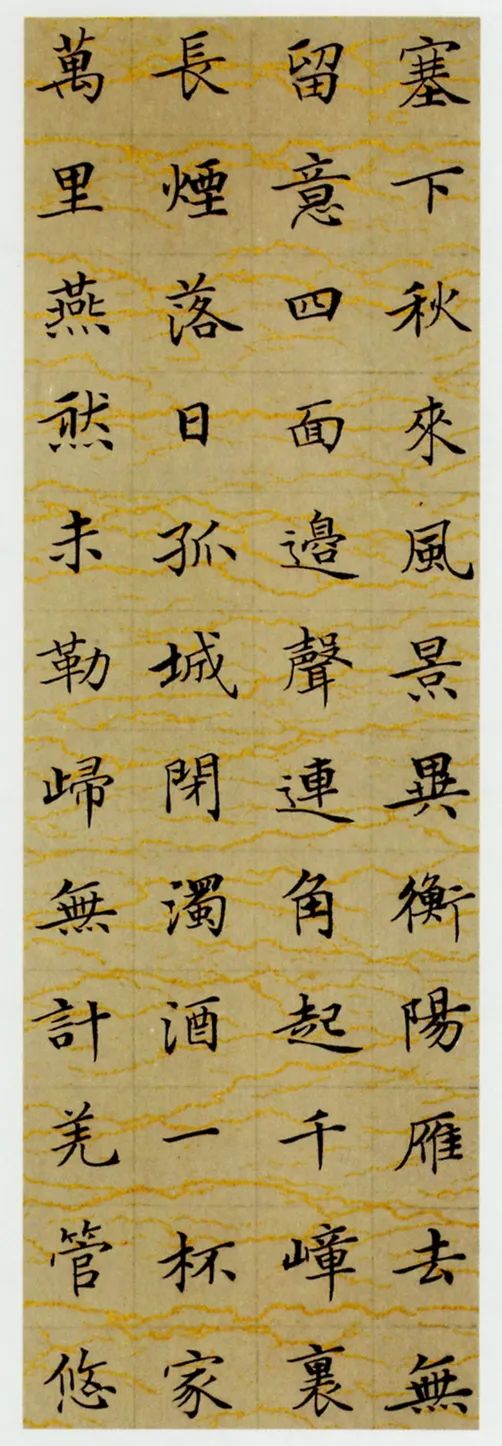 塞下秋來風景異衡陽雁去無
留意四面邊聲連角起千嶂裏
長煙落日孤城閉濁酒一杯家
萬里燕然未勒歸無計羌管悠